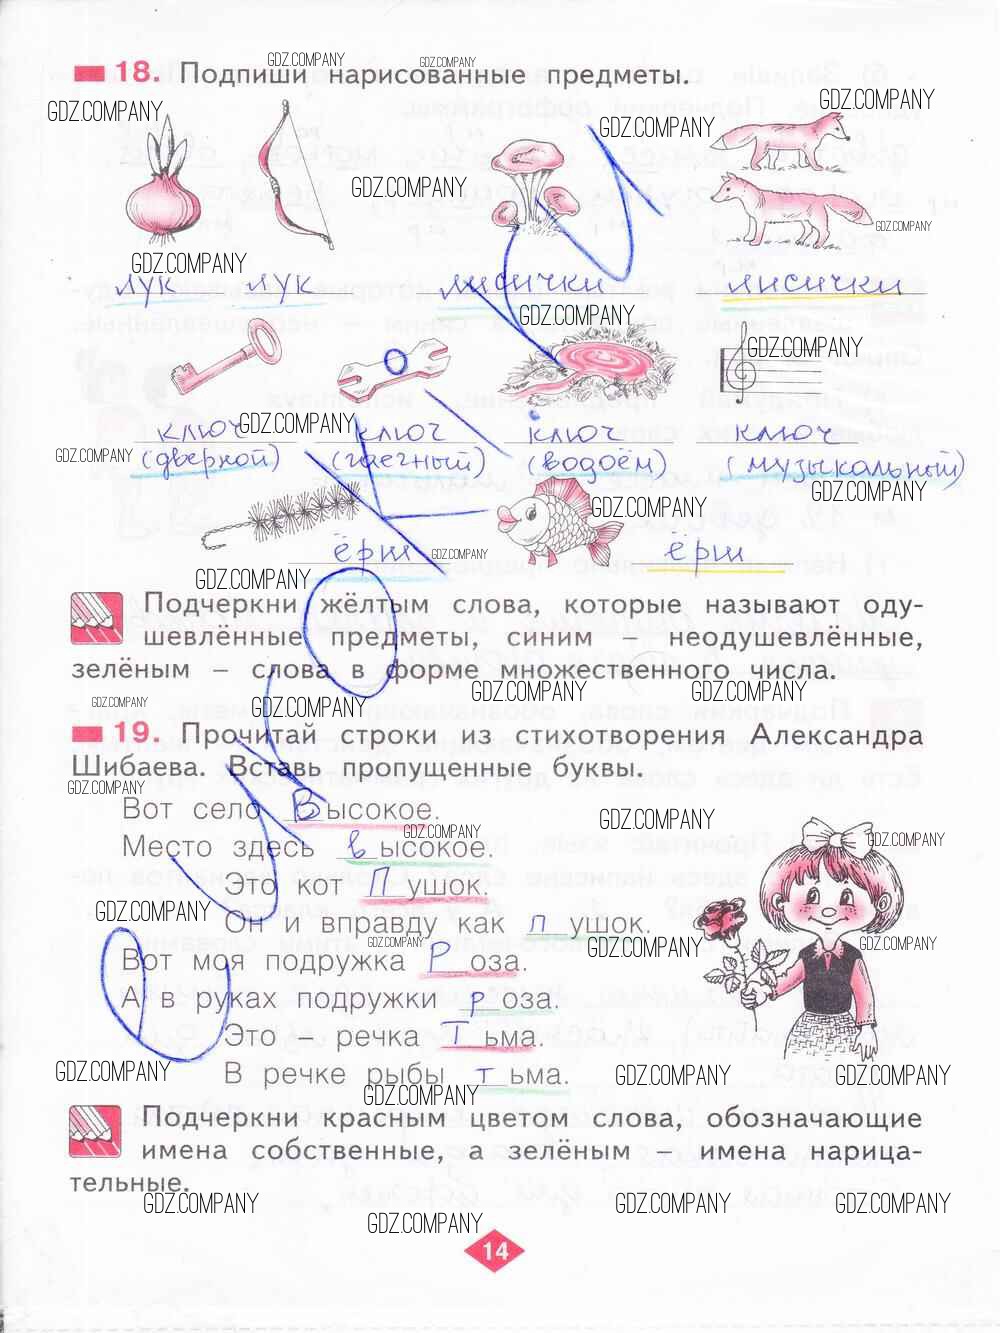 18. Подпиши нарисованные предметы.
лук лук лисички лисички
ключ ключ ключ ключ
(дверной) (гаечный) (водоём) (музыкальный)
ёрш ёрш
Подчеркни жёлтым слова, которые называют оду-
шевлённые предметы, синим – неодушевлённые,
зелёным – слова в форме множественного числа.
19. Прочитай строки из стихотворения Александра
Шибаева. Вставь пропущенные буквы.
Вот село Высокое.
Место здесь высокое.
Это кот Пушок.
Он и вправду как пушок.
Вот моя подружка Роза.
А в руках подружки роза.
Это – речка Тьма.
В речке рыбы тьма.
Подчеркни красным цветом слова, обозначающие
имена собственные, а зелёным – имена нарица-
тельные.
14
GDZ.COMPANY